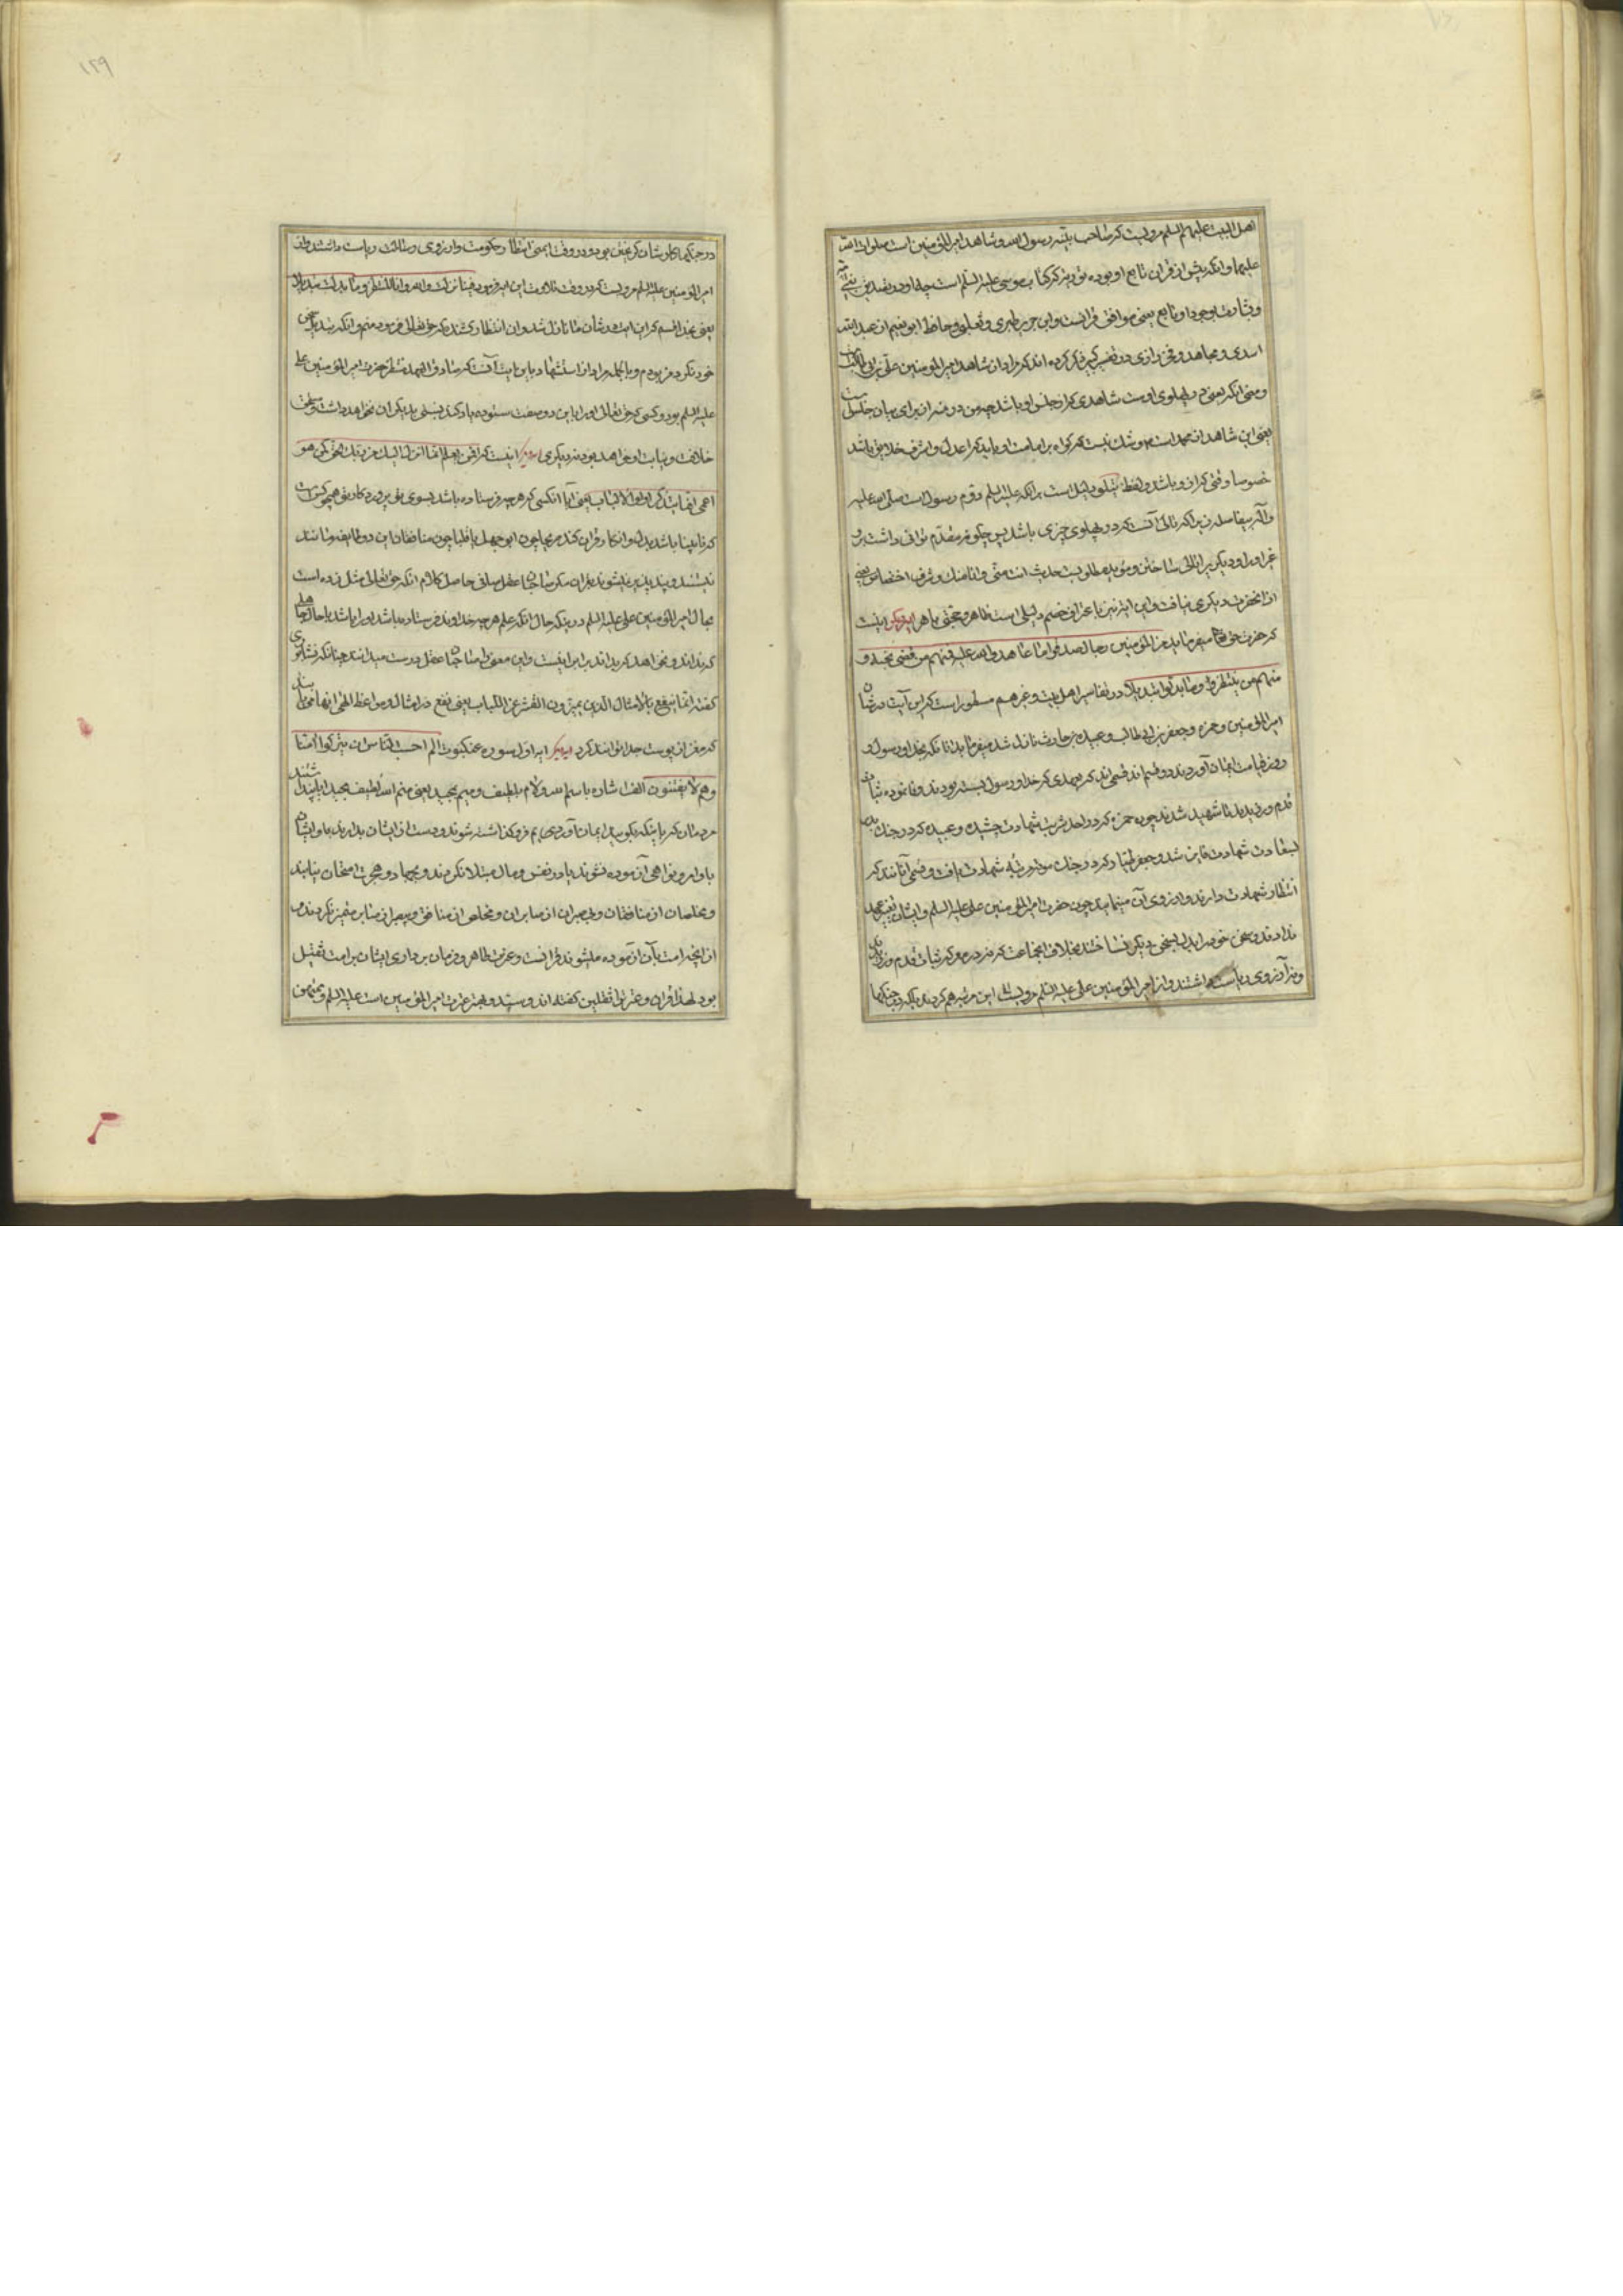 اهل البیت علیهم السلم مرویست که صاحب بینه رسول الله و شاهد امیر المؤمنین است صلوات الله
علیهما و انکه پیش از قران تابع او بوده توریة که کتاب موسی علیه السلم است چه او در تصدیق نبی
و بشارت بوجود او تابع یعنی موافق قرانست و ابن جریر طبری و ثعلبی و حافظ ابو نعیم از عبد الله
اسدی و مجاهد و فخر رازی در تفسیر کبیر ذکر کرده اند که مراد از شاهد امیر المؤمنین علی بن ابی طالب است
و منی انکه یعنی در پهلوی اوست شاهدی که از جنس او باشد چه من در منه از برای بیان جنس است
یعنی این شاهد از محمد است و شک نیست که کواه بر امامت او باید که اعدل و اشرف خلایق باشد
خصوصا وقتی که از او باشد و لفظ یتلوه دلیل است بر انکه علی علیه السلم دوم رسول است صلی الله علیه
و آله بیفاصله زیرا که تالی آنست که در پهلوی چیزی باشد پس چکونه مقدم توانی داشت بر او
غیر او را و دیکریرا تالی ساختن و مؤید مطلوبست حدیث انت منی و انا منک و شرف اختصاص یعنی
از انحضرت دیکری نیافت و این ایه نیز باعتراف خصم دلیلی است ظاهر و حجتی باهر ایه دیکر اینست
که حضرت حق تعالی میفرماید من المؤمنین رجال صدقوا ما عاهدوا الله علیه فمنهم من قضی نحبه و
منهم من ینتظر و ما بدلوا تبدیلا در تفاسیر اهل بیت و غیر هم مسطور است که این آیت در شان
امیر المؤمنین و حمزه و جعفر بن ابی طالب و عبیده بن حارث نازل شد میفرماید انانکه بخدا و رسول و
روز قیامت ایمان آوردند دو قسم اند قسمی اند که بعهدی که خدا و رسول بسته بودند وفا نموده ثبات
قدم ورزیدند تا شهید شدند چون حمزه که در احد شربت شهادت چشید و عبیده که در جنک بدر
بسعادت شهادت فایز شد و جعفر طیار که در جنک موته رتبه شهادت یافت و قسمی آنانند که
انتظار شهادت دارند و ارزوی آن مینمایند چون حضرت امیر المؤمنین علی علیه السلم و ایشان تغییر عهد
ندادند و سخن خود را بدل بسخن دیکر نساختند بخلاف انجماعت که نه در معرکه ثبات قدم ورزیدند
و نه آرزوی ریاست داشتند و از امیر المؤمنین علی علیه السلم مرویست این مرتبه هم کردند بلکه در جنکها
در جنکها کار ایشان کریختن بود و در وقت ایمنی انتظار حکومت و ارزوی ریاست داشتند و از
امیر المؤمنین علیه السلم مرویست که در وقت تلاوت این ایه فرمود فینا نزلت و الله و انا المنتظر و ما بدلت تبدیلا
یعنی بخدا قسم که این ایت در شان ما نازل شد و ان انتظار کشنده که حق تعالی فرموده منم و انکه تبدیل سخن
خود نکرد من بودم و بالجمله مراد از استشهاد باین ایت آنست که صادق العهد منتظر حضرت امیر المؤمنین علی
علیه السلم بود و کسی که حق تعالی او را باین دو صفت ستوده یاد کند نسبتی بدیکران نخواهد داشت و مستحق
خلافت و نیابت او خواهد بود نه دیکری ایه دیکر اینست که افمن یعلم انما انزل الیک من ربک الحق کمن هو
اعمی انما یتذکر اولوا الالباب یعنی آیا انکسی که هر چه فرستاده باشد بسوی تو پروردکار تو همچو کسی است
که نابینا باشد بدل و انکار قران کند مریجا چون ابوجهل یا قلبا چون منافقان این دو طایفه مانند
نیستند و پند پذیر نمیشوند بقران مکر صاحبان عقل صافی حاصل کلام انکه حق تعالی مثل زده است
بحال امیر المؤمنین علی علیه السلم در اینکه حال انکه علم هر چه خداوند فرستاده باشد او را باشد با حال جاهلی
که نداند و نخواهد که بداند برابر نیست و این معنی را صاحبان عقل درست میدانند چنانکه نیشابوری
کفته انما ینتفع بالامثال الذین یمیزون القشر عن اللباب یعنی نفع از امثال و مواعظ الهی انها می یابند
که مغز از پوست جدا توانند کرد ایه دیکر ایه اول سوره عنکبوت الم احسب الناس ان یترکوا ان یقولوا امنا
و هم لا یفتنون الف اشاره باسم الله و لام بلطیف و میم بمجید یعنی منم الله لطیف مجید ایا پنداشتند
مردمان که باینکه بکویند ایمان آوردیم فروکذاشته شوند و دست از ایشان بدارند با و ایشان
باوامر و نواهی آزموده نشوند یا در نفس و مال مبتلا نکردند و بجهاد و هجرت امتحان نیابند
و مخلصان از منافقان و بیصبران از صابران و مخلص از منافق و بیصبر از صابر متمیز نکردند و
از انچه امت بآن آزموده میشوند قرانست و عترت طاهره و فرمان برداری ایشان بر امت ثقیل
بود لهذا قران و عترت را ثقلین کفته اند و سید و مهتر عترت امیر المؤمنین است علیه السلم و
۱۲۹